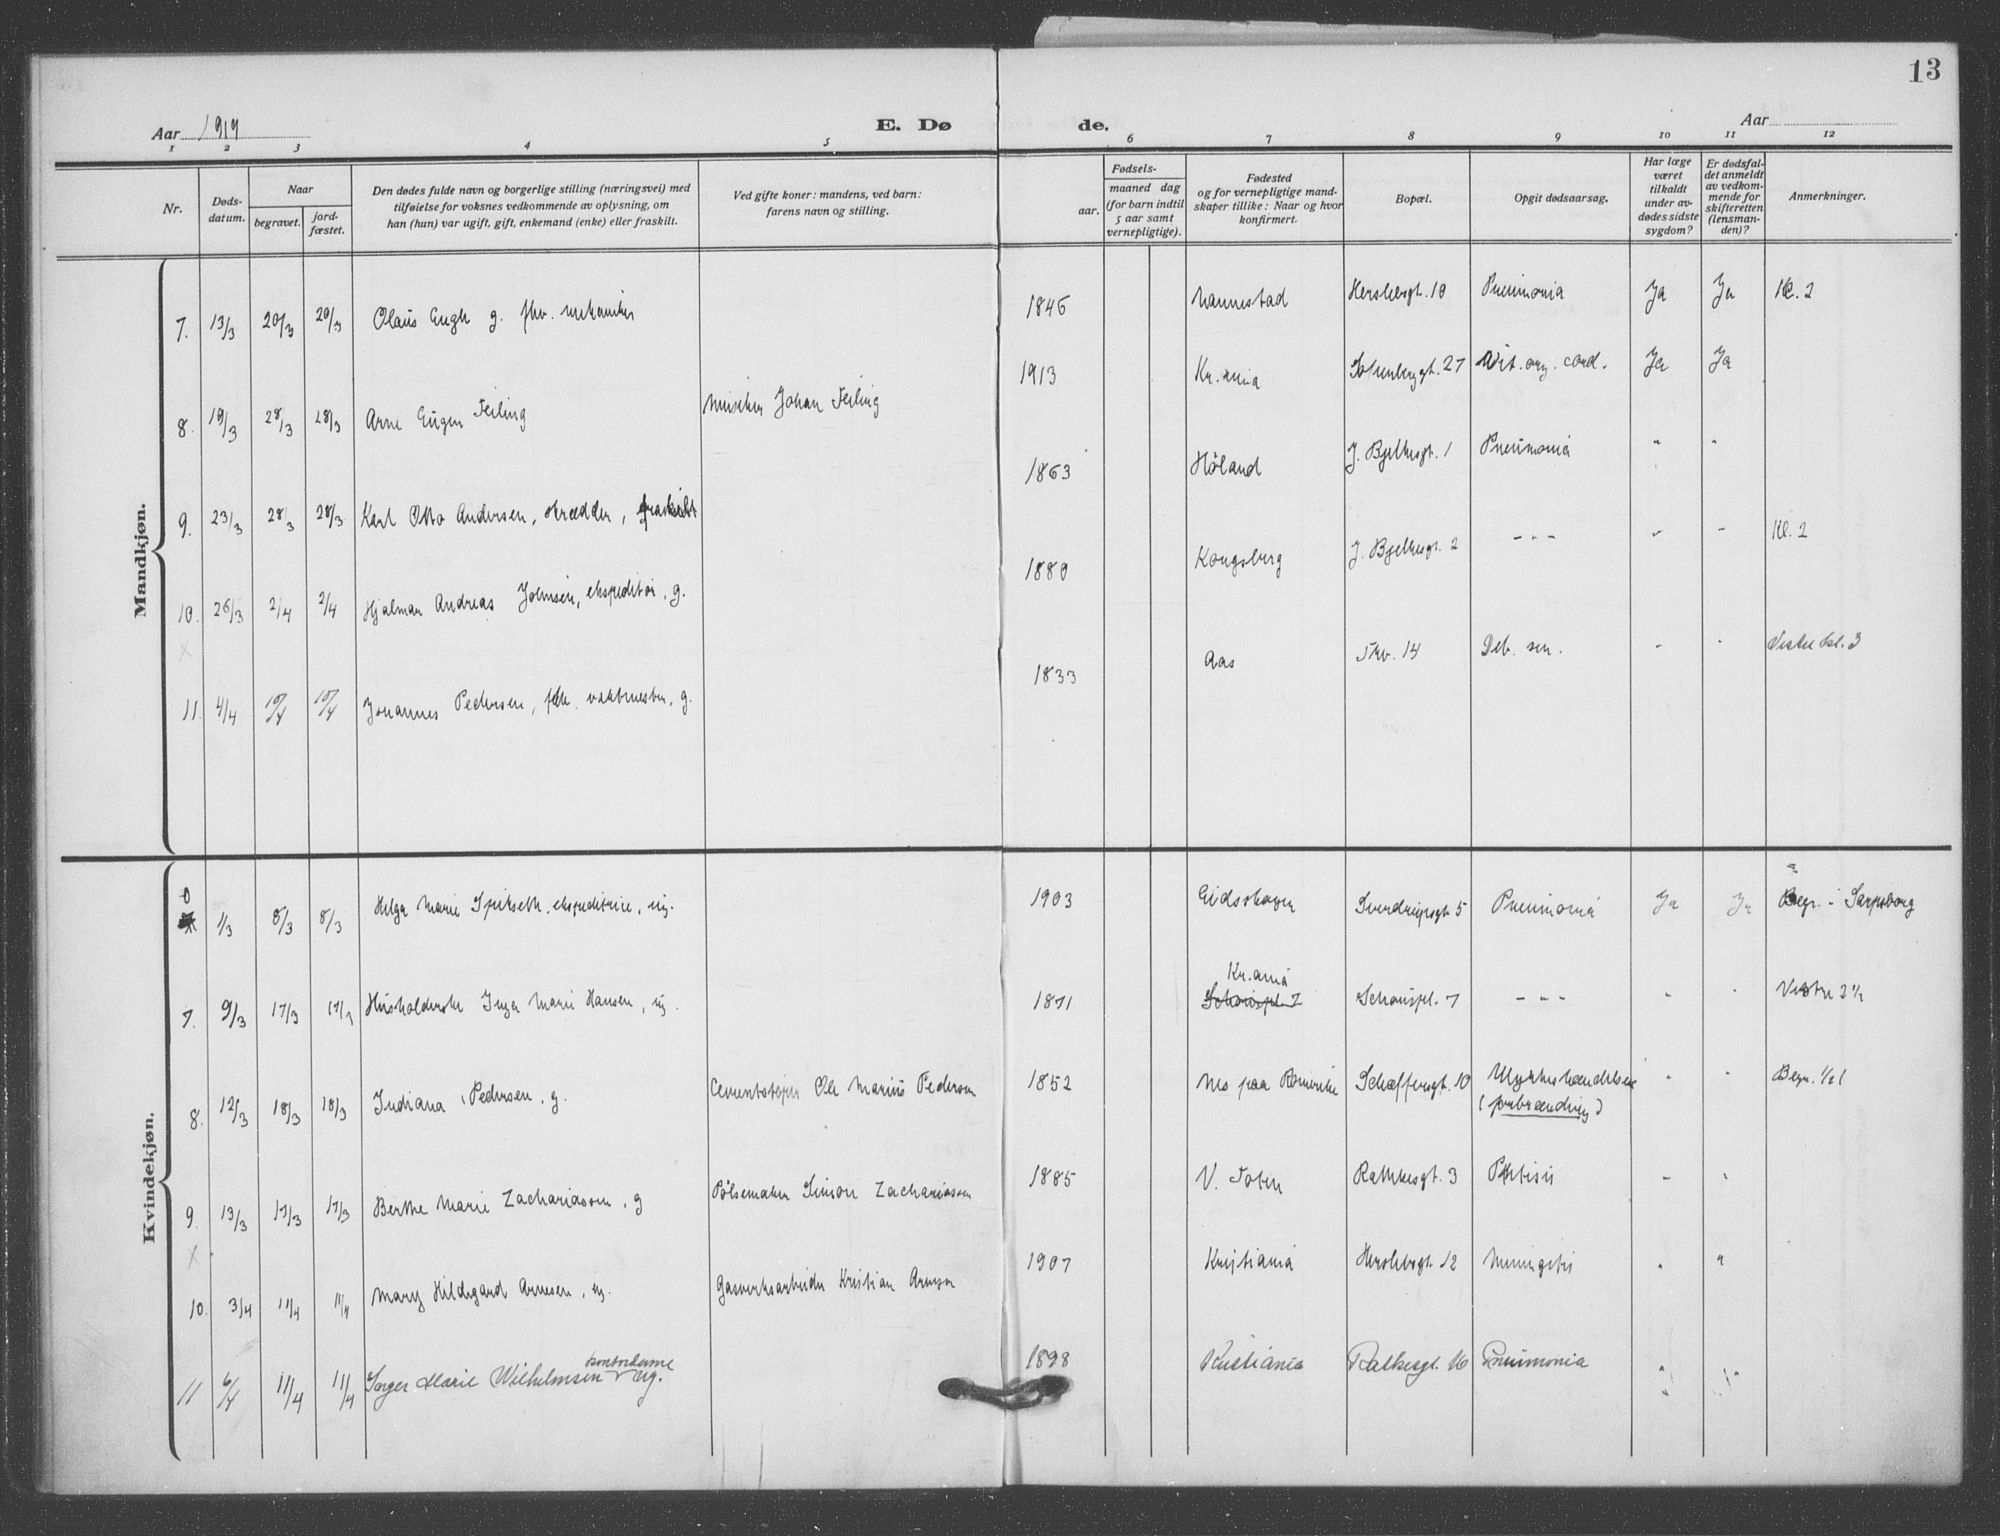 13
Aar 1919
E. Dø de.
Aar
1 2 3 4 5 6 7 8 9 10 11 12
Nr.
Døds-
datum.
Naar
begravet.
jord-
fæstet.
Den dødes fulde navn og borgerlige stilling (næringsvei) med
tilføielse for voksnes vedkommende av oplysning, om
han (hun) var ugift, gift, enkemand (enke) eller fraskilt.
Ved gifte koner: mandens, ved barn:
farens navn og stilling.
Fødsels-
aar.
maaned dag
(for barn indtil
5 aar samt
vernepligtige).
Fødested
og for vernepligtige mand-
skaper tillike: Naar og hvor
konfirmert.
Bopæl.
Opgit dødsaarsag.
Har læge
været
tilkaldt
under av-
dødes sidste
sygdom?
Er dødsfal-
det anmeldt
av vedkom-
mende for
skifteretten
(lensman-
den)?
Anmerkninger.
Mandkjøn.
7. 13/3 20/3 20/3 Olaus Engh g. fhv. mekaniker 1846 Nannestad Herslebsgt. 10 Pneumonia Ja Ja Kl. 2
8. 19/3 28/3 28/3 Arne Eugen Feiling Johan Feiling 1913 Kr.ania 27 Vit. org. cord. Ja Ja
9. 23/3 28/3 28/3 Karl Otto Andersen, skrædder, fraskilt 1863 Høland J. Bjelkesgt. 1 Pneumonia " "
10. 26/3 2/4 2/4 Hjalmar Andreas Johnsen, ekspeditør, g. 1880 Kongsberg J. Bjelkesgt. 2 - " - " - Kl. 2
11. 4/4 10/4 10/4 Johannes Pedersen, vaktmester, g. 1833 Aas 14 Deb. sen. " " Vestre kl. 3
Kvindekjøn.
1/3 8/3 8/3 Helga Marie ekspeditrice, ug. 1903 Eidskogen Sverdrupsgt 5 Pneumonia Ja Ja Begr. i Sarpsborg
7. 9/3 17/3 17/3 Husholderske Inga Marie Hansen, ug. 1871 Kr.ania Schouspl. 7 - " - " " Vestre 2 1/2
8. 12/3 18/3 18/3 Indiana Pedersen, g. Ole Marius Pedersen 1852 Nes paa Romerike Schæffersgt. 10 Ulykkeshændelse
(forbrænding) " " Begr. 1/2 1
9. 13/3 17/3 17/3 Berthe Marie Zachariassen, g Pølsemaker Simon Zachariassen 1885 V. Toten Rathkesgt. 3 Phtisis " "
10. 3/4 11/4 11/4 Mary Hildegard Arnesen, ug. Gasverksarbeider Kristian Arnesen 1907 Kristiania Herslebsgt 12 Meningitis " "
11 6/4 11/4 11/4 Inger Marie Wilhelmsen kontordame ug. 1898 Kristiania Rathkesgt. 16 Pneumonia " "